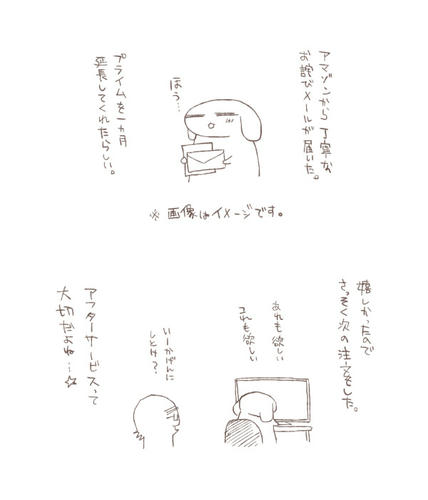 アマゾンから丁寧な
お詫びメールが届いた。
ほう…
プライムを一ヵ月
延長してくれたらしい。
※画像はイメージです。
嬉しかったので
さっそく次の注文をした。
あれも欲しい
これも欲しい
いーかげんに
しとけ?
アフターサービスって
大切だよね…☆